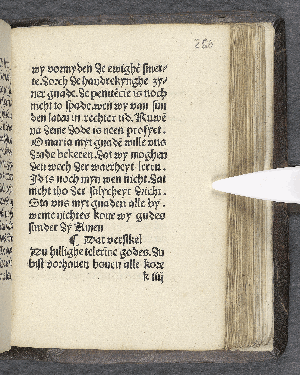 wy vormyden de ewighe smer-
te. Dorch de handrekynghe dy-
ner gnade. De penitēcie is noch
nicht to spade. wen wy van sun
den laten in rechter tid. Ruwē
na deme dode is neen profyet.
O maria myt gnadē wille uns
drade bekeren. Dat wy moghen
den wech der waerheyt leren.
Id is noch myn wen nicht. Dat
nicht tho der salycheyt dicht.
Sta uns myt gnaden alle by.
wente nichtes kone wy gudes
sunder dy Amen
Dat versikel
Du hillighe telerine godes. du
bist vorhauen bouen alle kore
k iiij